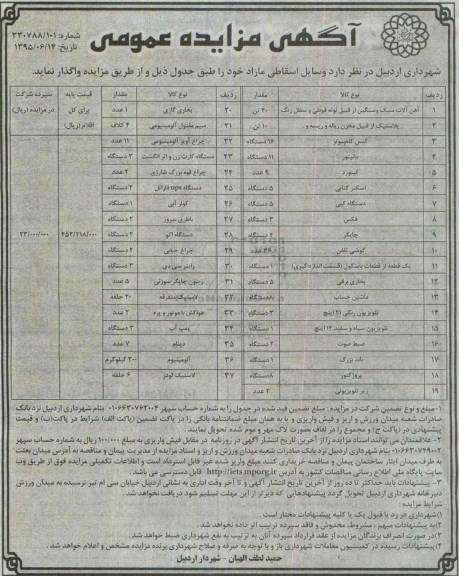 شماره: ۳۳۰۷۸۸/۱۰۱
تاریخ: ۱۳۹۵/۰۶/۱۴
آگهی مزایده عمومی
شهرداری اردبیل در نظر دارد وسایل اسقاطی مازاد خود را طبق جدول ذیل و از طریق مزایده واگذار نماید.
ردیف نوع کالا مقدار ردیف نوع کالا مقدار قیمت پایه برای کل اقلام (ریال) سپرده شرکت در مزایده (ریال)
۱ آهن آلات سبک وسنگین از قبیل لوله قوطی و سطل رنگ ۲۰ تن ۲۰ بخاری گازی ۱ عدد
۲ پلاستیک از قبیل مخزن زباله و ریسه و.. ۱۰ تن ۲۱ سیم مفتول آلومینیومی ۴ کلاف
۳ کیس کامپیوتر ۱۶ دستگاه ۲۲ چراغ آویز آلومینیومی ۱۱ عدد
۴ مانیتور ۱۱ دستگاه ۲۳ دستگاه کارت زن و اثر انگشت ۳ دستگاه
۵ کیبورد ۹ عدد ۲۴ چراغ قوه بزرگ شارژی ۲ عدد
۶ اسکنر کتابی ۵ دستگاه ۲۵ دستگاه ups فاراتل ۲ دستگاه
۷ دستگاه کپی ۵ دستگاه ۲۶ کولر آبی ۱ دستگاه
۸ فکس ۳ دستگاه ۲۷ باطری سرور ۲ دستگاه
۹ چاپگر ۲ دستگاه ۲۸ دستگاه اکو ۲ دستگاه ۴۵۲/۲۱۸/۰۰۰ ۲۳/۰۰۰/۰۰۰
۱۰ گوشی تلفن ۳۸ عدد ۲۹ چراغ حبابی ۲ دستگاه
۱۱ یک قطعه از قطعات باسکول (قسمت اندازه گیری) ۱ دستگاه ۳۰ رایتر سی دی ۳ دستگاه
۱۲ بخاری برقی ۵ دستگاه ۳۱ ریبون چاپگر سوزنی ۵ عدد
۱۳ ماشین حساب ۸ دستگاه ۳۲ لاستیک متفرقه ۲۰ حلقه
۱۴ تلویزیون رنگی ۲۱ اینچ ۳ دستگاه ۳۳ هواکش با موتور و پره ۲ عدد
۱۵ تلویزیون سیاه و سفید ۱۴ اینچ ۱ دستگاه ۳۴ پمپ آب ۳ دستگاه
۱۶ ضبط صوت ۲ دستگاه ۳۵ دینام ۷ عدد
۱۷ باند بزرگ ۱ دستگاه ۳۶ آلومینیوم ۲۰۰ کیلوگرم
۱۸ پروژکتور ۸ دستگاه ۳۷ لاستیک لودر ۶ حلقه
۱۹ زیر تلویزیونی ۳ عدد
۱- مبلغ و نوع تضمین شرکت در مزایده: مبلغ تضمین قید شده در جدول را به شماره حساب سپهر ۰۱۰۶۶۳۰۷۶۲۰۰۴ بنام شهرداری اردبیل نزد بانک
صادرات شعبه میدان ورزش و اریز و فیش واریزی و یا به همان مبلغ ضمانتنامه بانکی را در پاکت تضمین (پاکت الف) شرایط در پاکت(ب) و قیمت
پیشنهادی در (پاکت ج) و مجموع را در لفاف بصورت لاک مهر و موم شده تحویل نمایند.
۲- علاقمندان می توانند اسناد مزایده را از آخرین تاریخ انتشار آگهی در روزنامه در مقابل فیش واریزی به مبلغ ۱۰۰/۰۰۰ ریال به شماره حساب سپهر
۰۱۰۶۶۳۰۷۴۹۰۰۲ بنام شهرداری اردبیل نزد بانک صادرات شعبه میدان ورزش و اریز و اسناد مزایده از مدیریت پیمان و مناقصه به آدرس میدان بعثت
به طرف میدان ایثار ساختمان پیمان و مناقصه خریداری کنند. مبلغ واریز شده غیر قابل استرداد است و اطلاعات تکمیلی مزایده فوق از طریق وب
سایت پایگاه ملی اطلاع رسانی مناقصات کشور به آدرس http://iets.mporg.ir قابل دسترسی می باشد.
۳- پیشنهادات باید حداکثر تا ده روز از آخرین تاریخ انتشار آگهی و تا آخر وقت اداری به نشانی اردبیل خیابان سی ام تیر نرسیده به میدان ورزش
دبیرخانه شهرداری اردبیل تحویل گردد پیشنهادهایی که دیرتر از این مهلت تسلیم شود دریافت نخواهد شد.
شرایط مزایده:
۱)شهرداری در رد یا قبول یک یا کلیه پیشنهادات مختار است.
۲)به پیشنهادات مبهم، مشروط، مخدوش و فاقد سپرده ترتیب اثر داده نخواهد شد.
۳)در صورت انصراف برندگان مزایده از عقد قرارداد سپرده آنان به ترتیب به نفع شهرداری ضبط خواهد شد.
۴)پیشنهادات رسیده در کمیسیون معاملات شهرداری باز و با توجه به صرفه و صلاح شهرداری برنده مزایده مشخص و اعلام خواهد شد.
حمید لطف الهیان - شهردار اردبیل